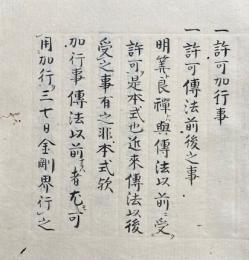 一 許可加行事
一 許可傳法前後之事
明算良禪與傳法以前ニ受ク
許可是本式也近來傳法以後
受之事有之非本式欤
加行事傳法以前ナラ者尤可
用加行三七日金剛界行之